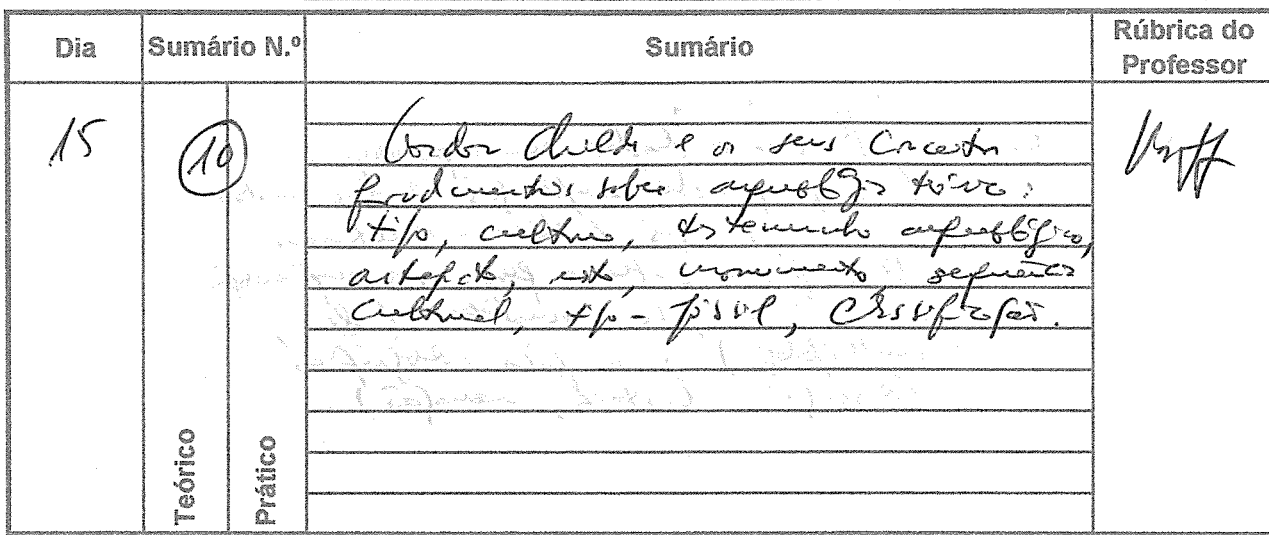 Dia Sumário N.º Sumário Rúbrica do Professor
15 10 Gordon Childe e os seus conceitos
fundamentais sobre arqueologia teórica:
tipo, cultura, testemunho arqueológico,
artefacto, monumento, sequência
cultural, tipo-fóssil, classificação.
Teórico
Prático